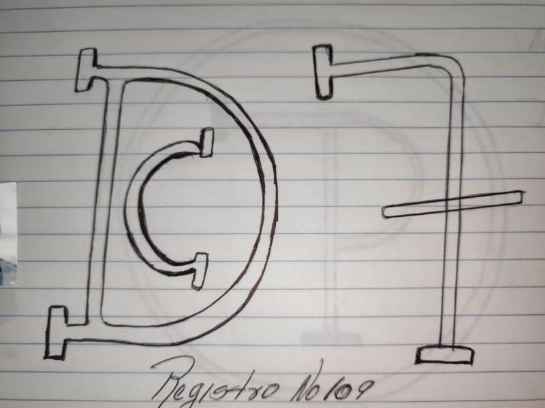 DC 7
Registro No 109